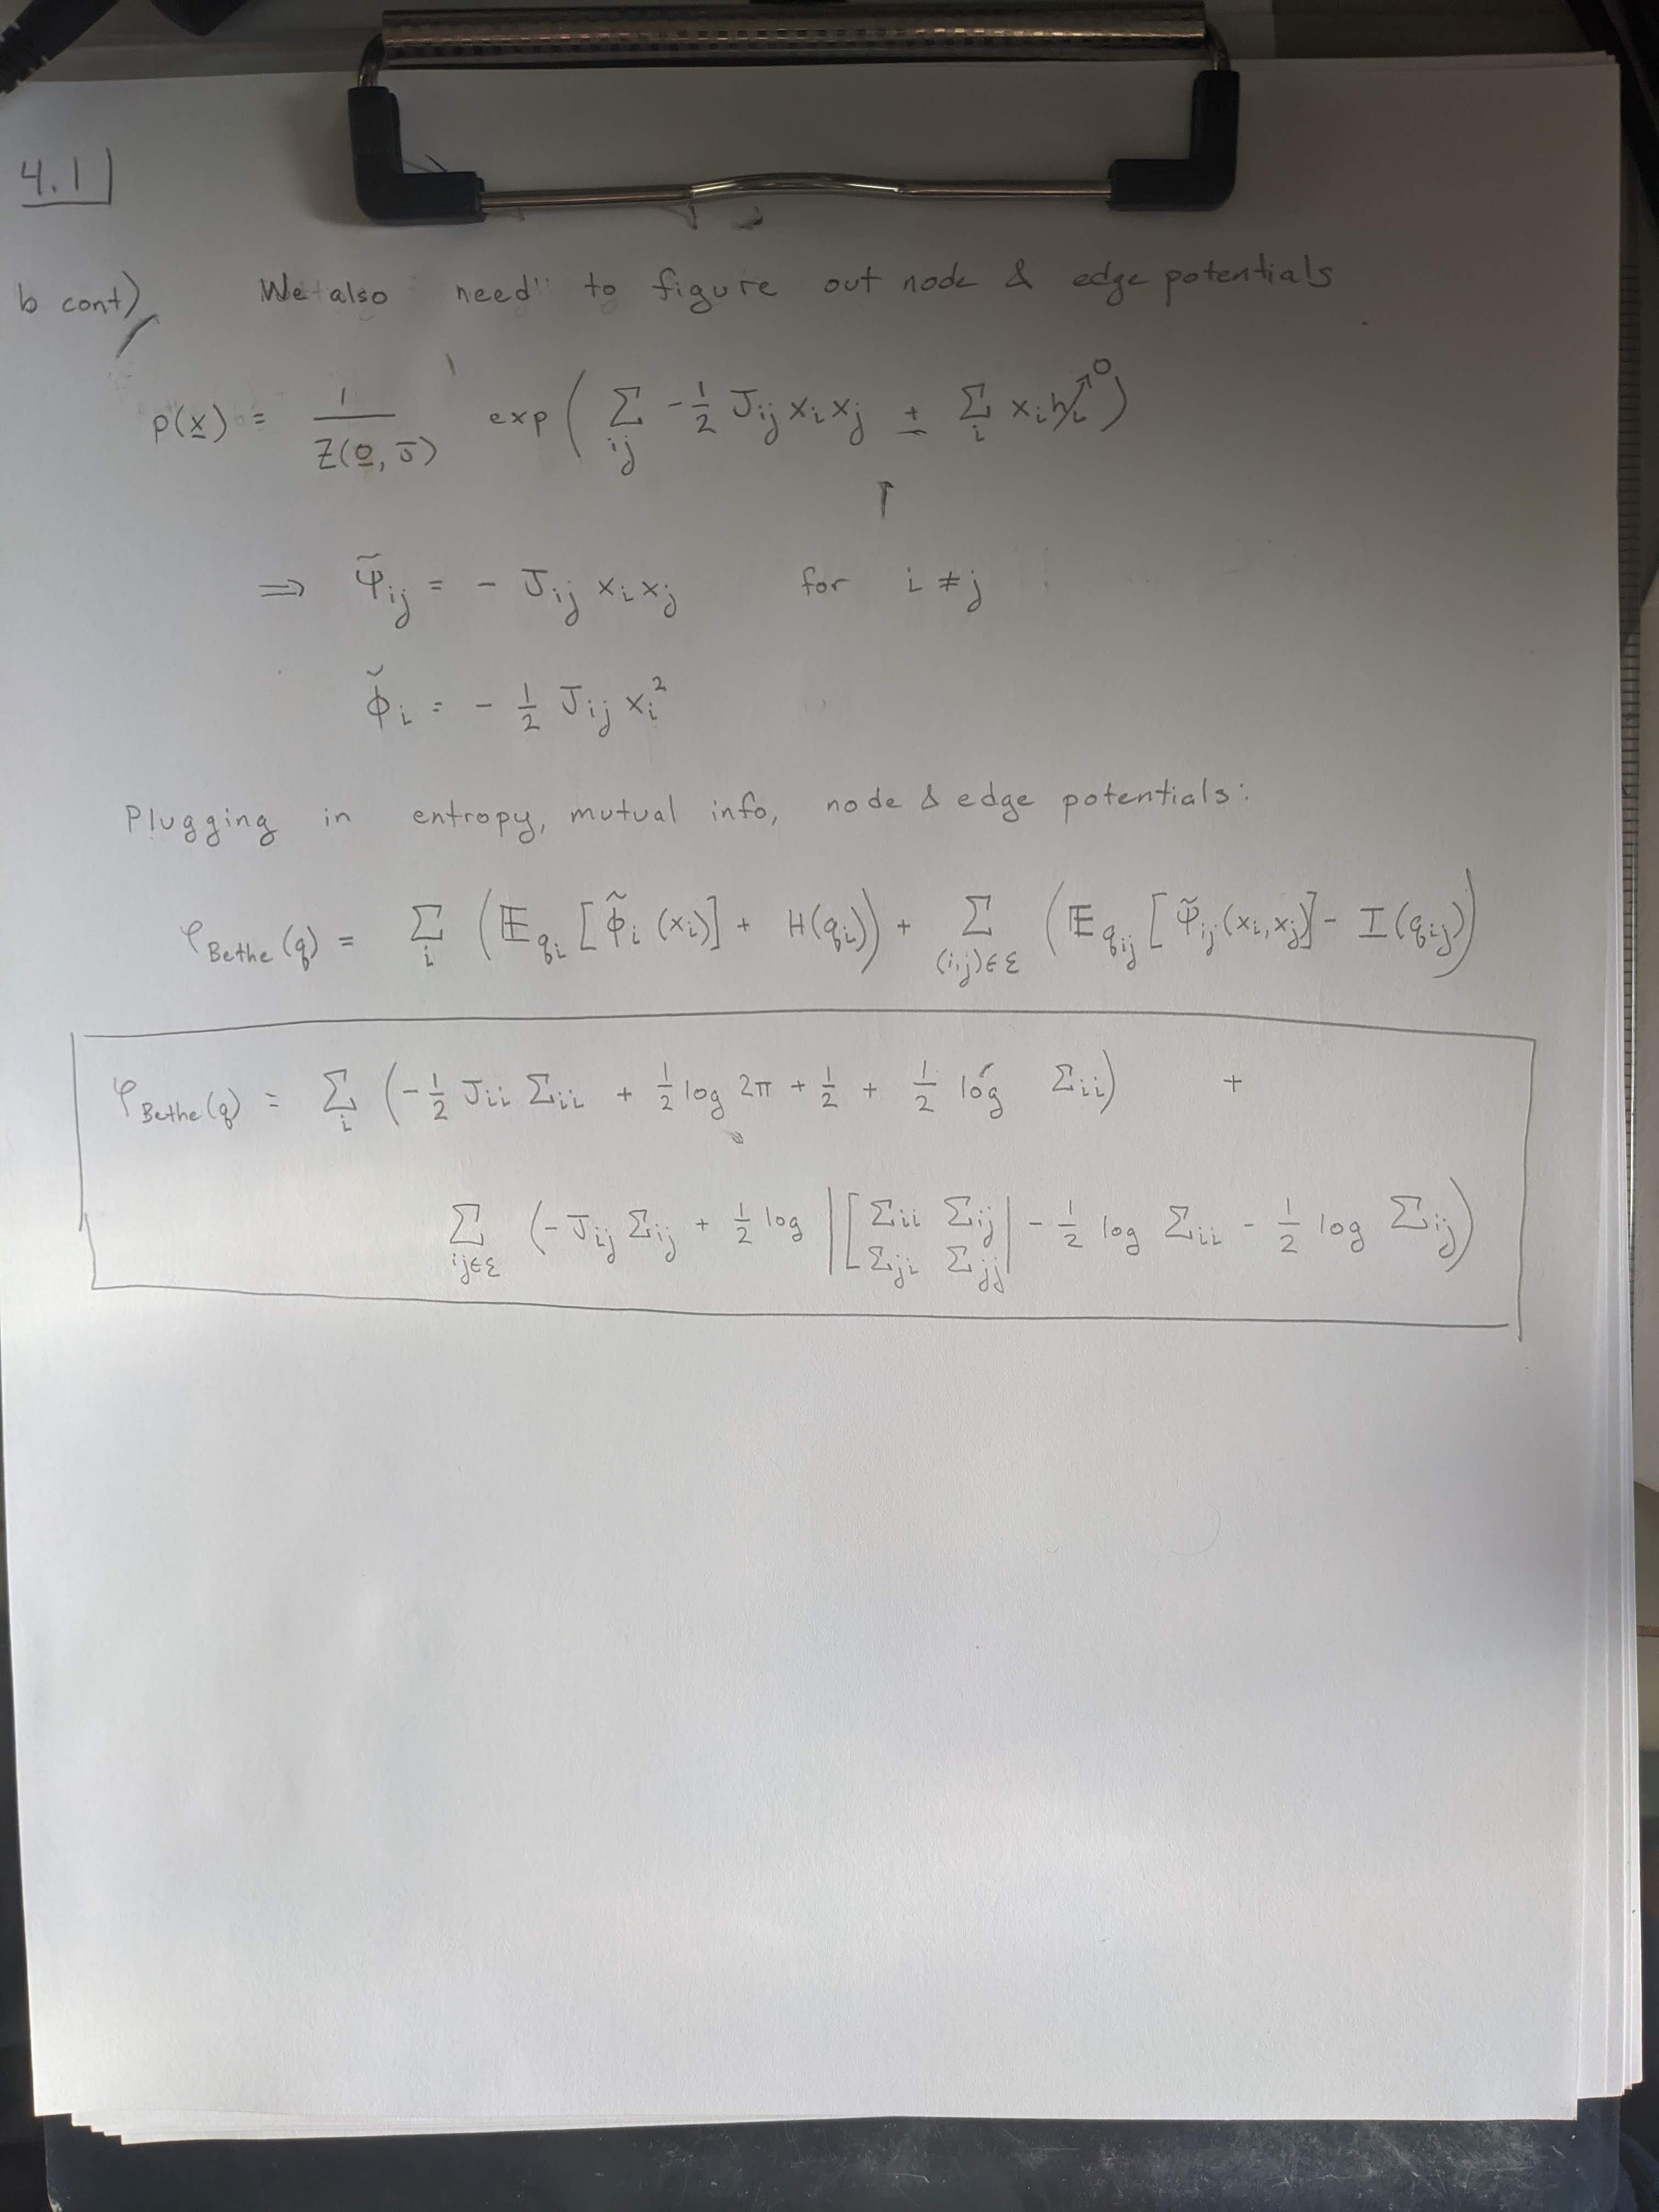 4.1
b cont) We also need to figure out node & edge potentials
p(x) = 1/Z(0, J) exp( Σ_ij -1/2 J_ij x_i x_j + Σ_i x_i h_i → 0 )
⇒ ψ̃_ij = - J_ij x_i x_j for i ≠ j
ϕ̃_i = - 1/2 J_ij x_i^2
Plugging in entropy, mutual info, node & edge potentials:
φ_Bethe(q) = Σ_i ( 𝔼_q_i [ϕ̃_i (x_i)] + H(q_i) ) + Σ_(i,j)∈ε ( 𝔼_q_ij [ψ̃_ij (x_i, x_j)] - I(q_ij) )
φ_Bethe(q) = Σ_i ( -1/2 J_ii Σ_ii + 1/2 log 2π + 1/2 + 1/2 log Σ_ii ) +
Σ_ij∈ε ( - J_ij Σ_ij + 1/2 log | [ Σ_ii Σ_ij | - 1/2 log Σ_ii - 1/2 log Σ_ij )
Σ_ji Σ_jj